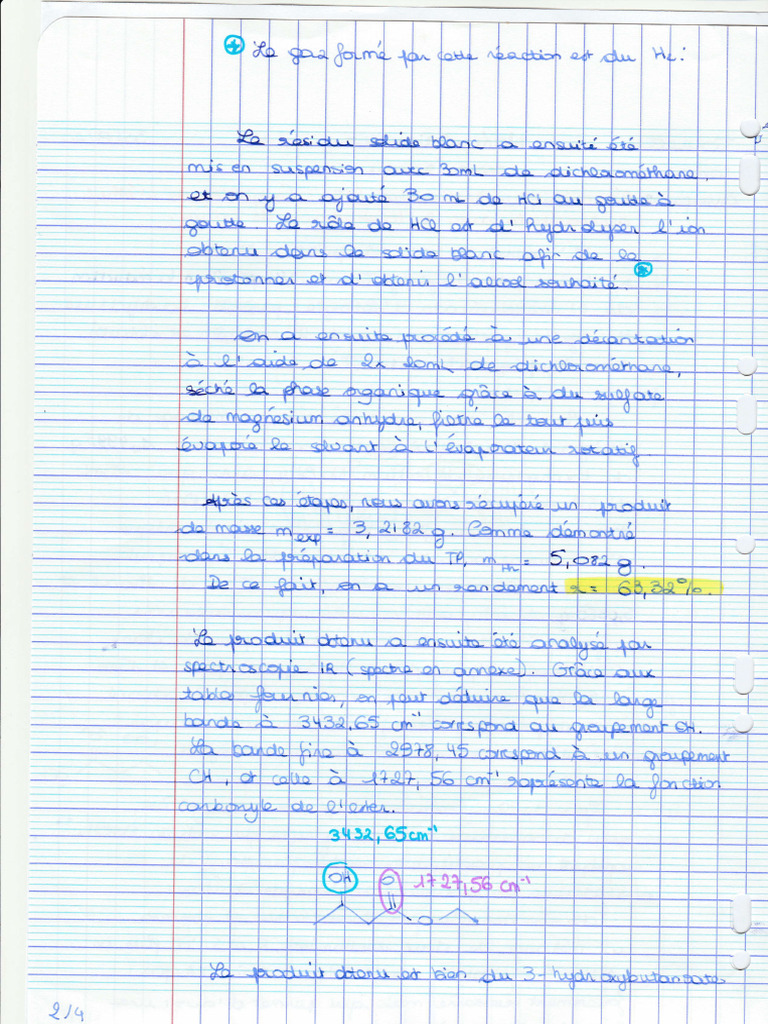 * Le gaz formé par cette réaction est du H2 :
Le résidu solide blanc a ensuite été
mis en suspension avec 30mL de dichlorométhane.
et on y a ajouté 30 mL de HCl au goutte à
goutte. Le rôle de HCl est d'hydrolyser l'ion
obtenu dans le solide blanc afin de le
protonner et d'obtenir l'alcool souhaité.
On a ensuite procédé à une décantation
à l'aide de 2x 20mL de dichlorométhane,
séché la phase organique grâce à du sulfate
de magnésium anhydre, filtré le tout puis
évaporé le solvant à l'évaporateur rotatif.
Après ces étapes, nous avons récupéré un produit
de masse mexp = 3,2182 g. Comme démontré
dans la préparation du TP, mth = 5,082 g.
De ce fait, on a un rendement r = 63,32%.
Le produit obtenu a ensuite été analysé par
spectroscopie IR (spectre en annexe). Grâce aux
tables fournies, on peut déduire que la large
bande à 3432,65 cm-1 correspond au groupement OH.
La bande fine à 2978,45 correspond à un groupement
CH, et celle à 1727,56 cm-1 représente la fonction
carbonyle de l'ester.
3432,65 cm-1
OH O 1727,56 cm-1
O
Le produit obtenu est bien du 3-hydroxybutanoate
2/4